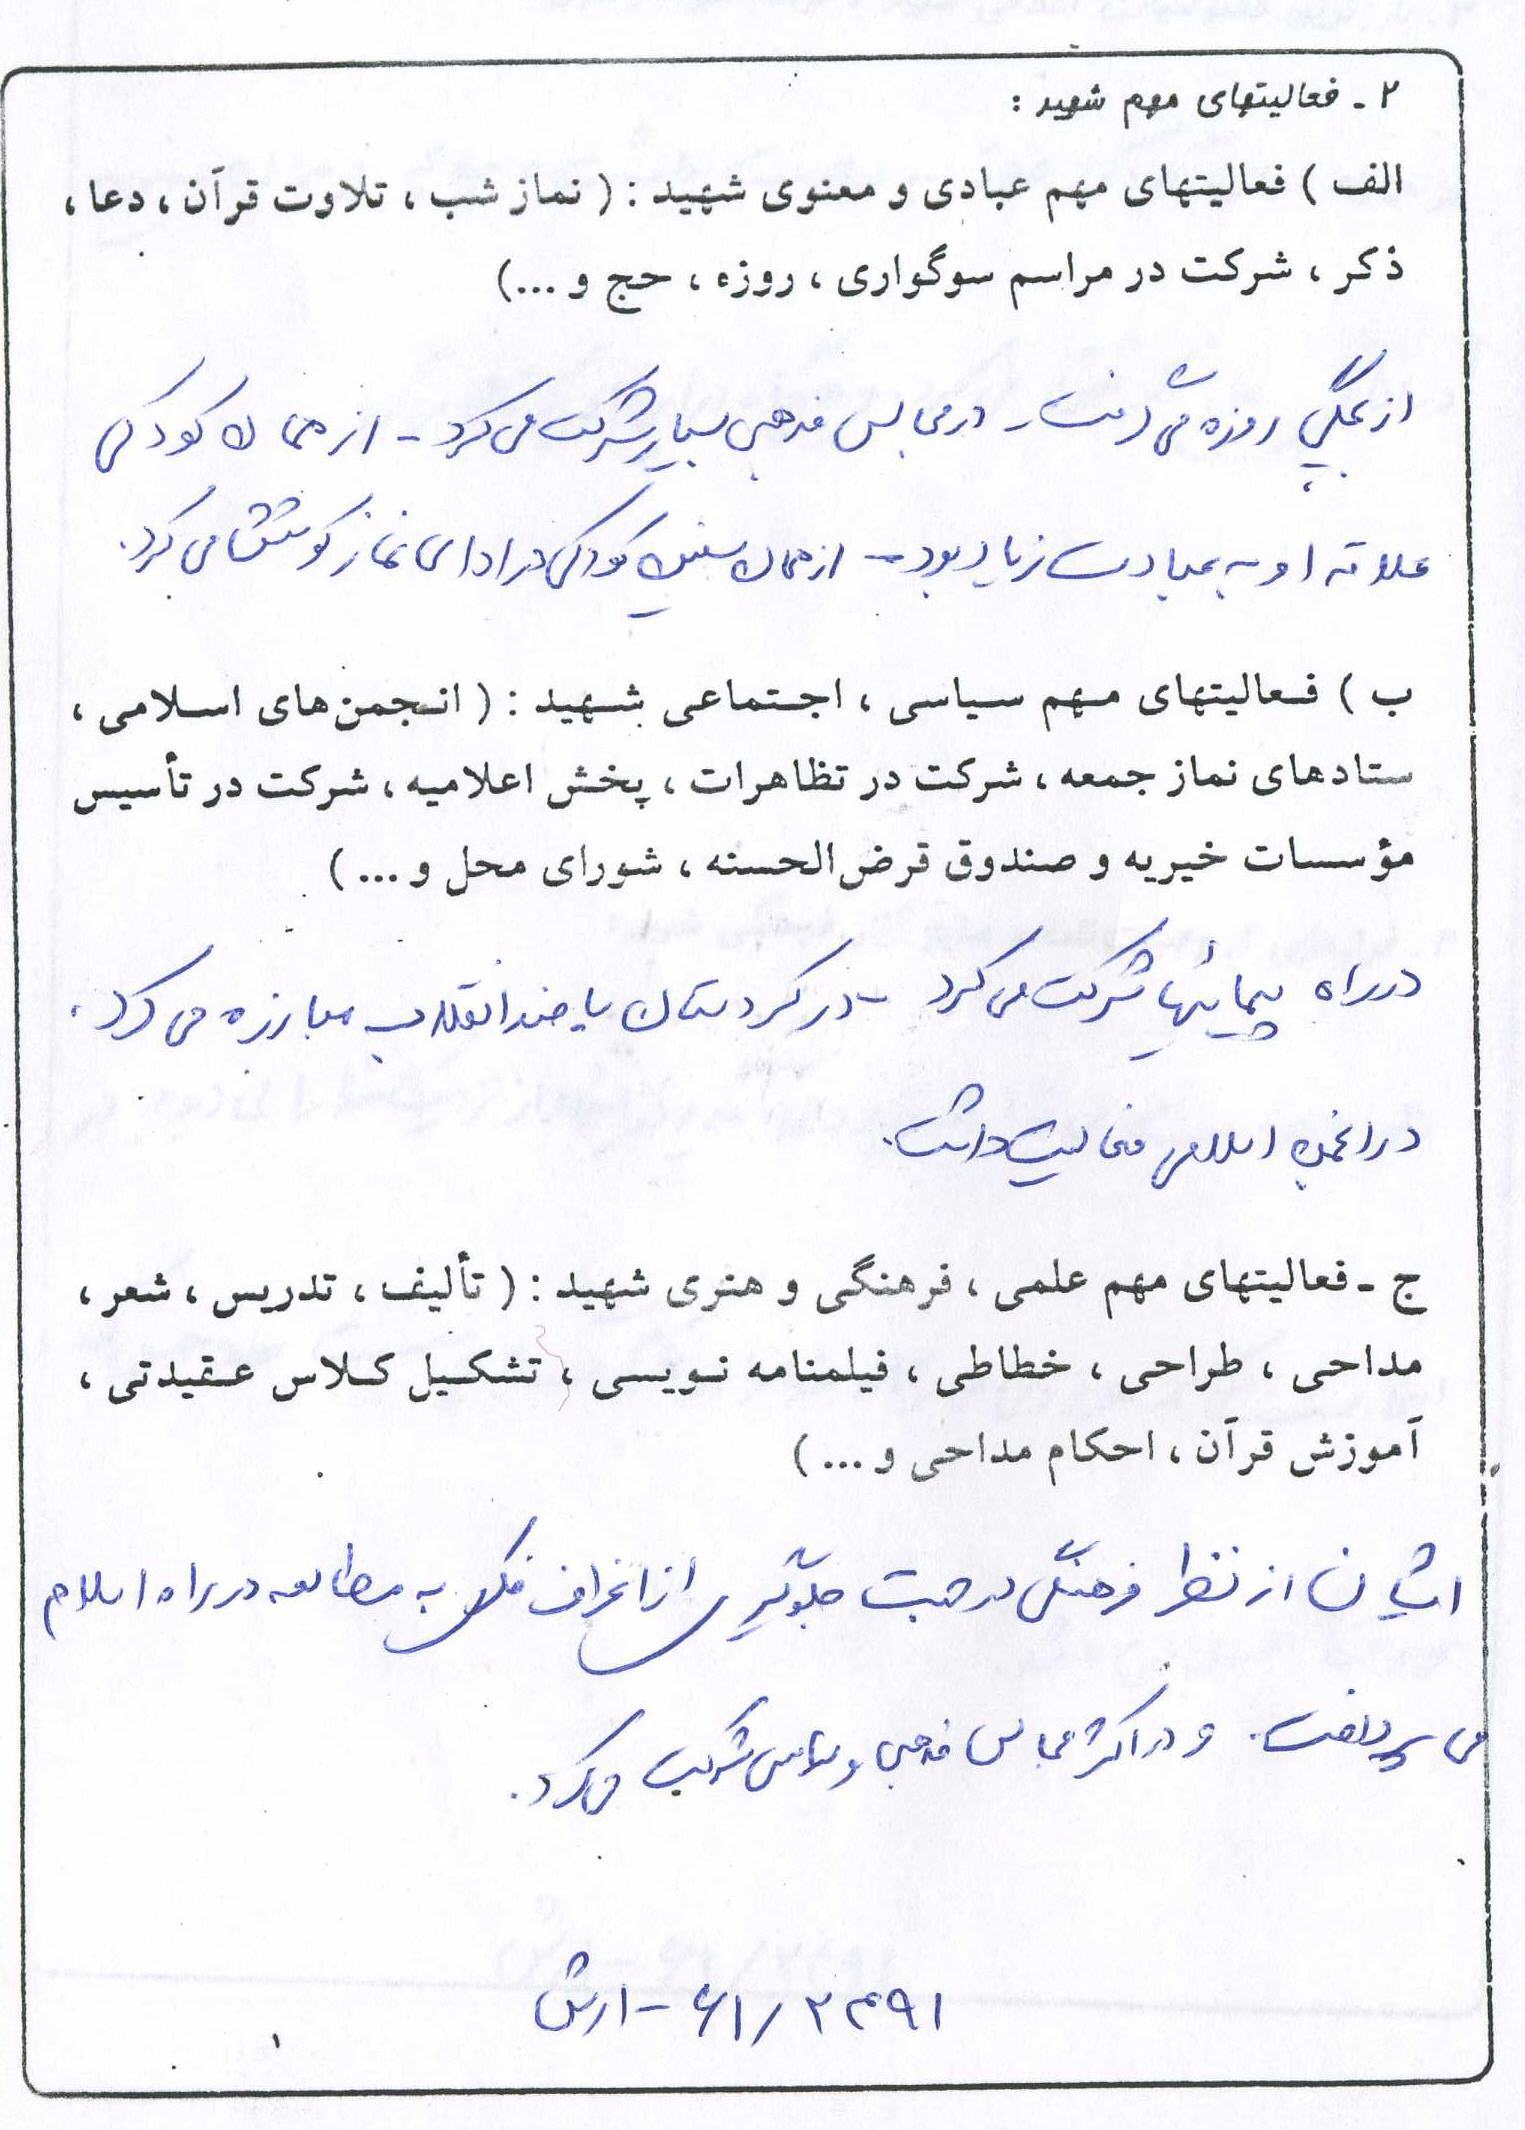 ۲ - فعالیتهای مهم شهید :
الف ) فعالیتهای مهم عبادی و معنوی شهید : ( نماز شب ، تلاوت قرآن ، دعا ،
ذکر ، شرکت در مراسم سوگواری ، روزه ، حج و ...)
از بچگی روزه می گرفت - در مجالس مذهبی بسیار شرکت می کرد - از همان کودکی
علاقه او به عبادت زیاد بود - از همان سنین کودکی در ادای نماز کوشش می کرد.
ب ) فعالیتهای مهم سیاسی ، اجتماعی شهید : ( انجمن های اسلامی ،
ستادهای نماز جمعه ، شرکت در تظاهرات ، پخش اعلامیه ، شرکت در تأسیس
مؤسسات خیریه و صندوق قرض الحسنه ، شورای محل و ... )
در راه پیمائیها شرکت می کرد - در کردستان با ضد انقلاب مبارزه می کرد.
در انجمن اسلامی فعالیت داشت.
ج - فعالیتهای مهم علمی ، فرهنگی و هنری شهید : ( تألیف ، تدریس ، شعر ،
مداحی ، طراحی ، خطاطی ، فیلمنامه نویسی ، تشکیل کلاس عقیدتی ،
آموزش قرآن ، احکام مداحی و ... )
ایشان از نظر فرهنگی در جهت جلوگیری از انحراف فکری به مطالعه در راه اسلام
می پرداخت. و در اکثر مجالس مذهبی و سیاسی شرکت می کرد.
۶۱/۲۴۹۱ - ارتش